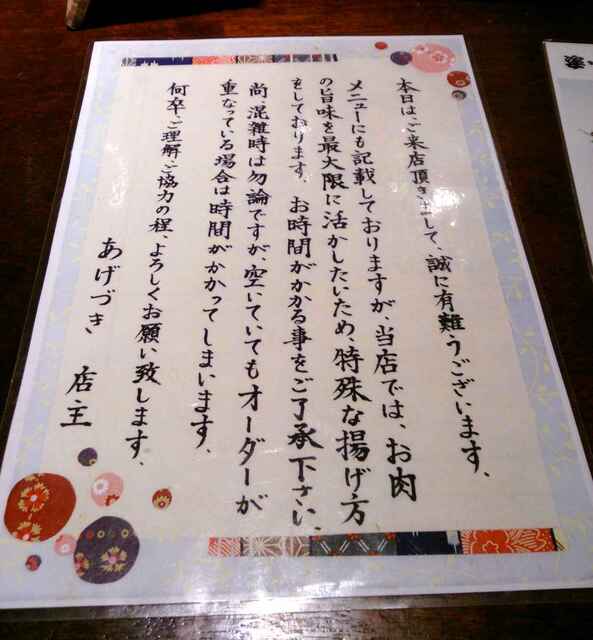 本日は、ご来店頂きまして、誠に有難うございます、
メニューにも記載しておりますが、当店では、お肉
の旨味を最大限に活かしたいため、特殊な揚げ方
をしております、お時間がかかる事をご了承下さい、
尚、混雑時は勿論ですが、空いていてもオーダーが
重なっている場合は時間がかかってしまいます、
何卒、ご理解ご協力の程、よろしくお願い致します、
あげづき 店主